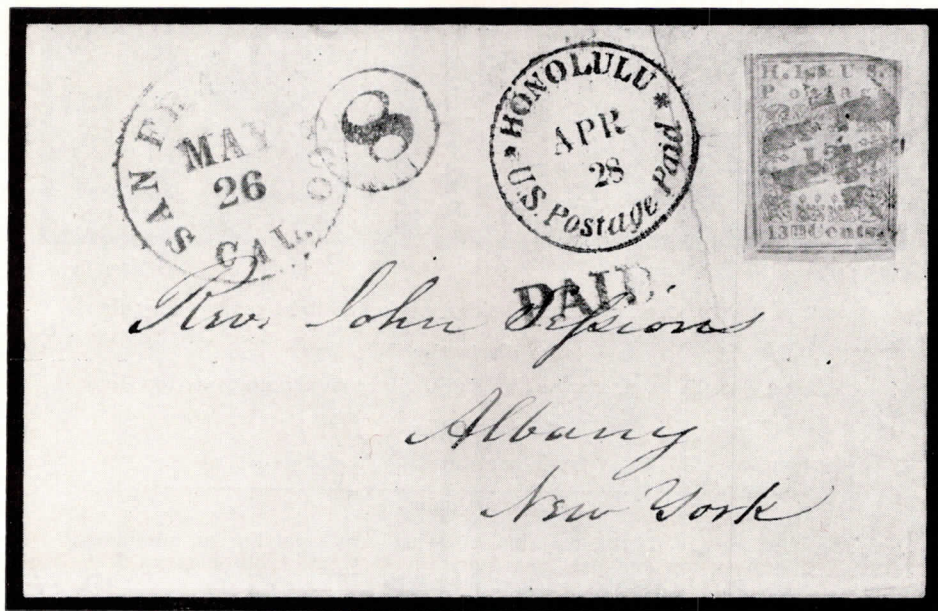 SAN FRANCISCO CAL.
MAY
26
8
HONOLULU
APR
28
U.S. Postage Paid
H.I. & U.S.
Postage
13 Cents.
PAID
Rev. John Sessions
Albany
New York